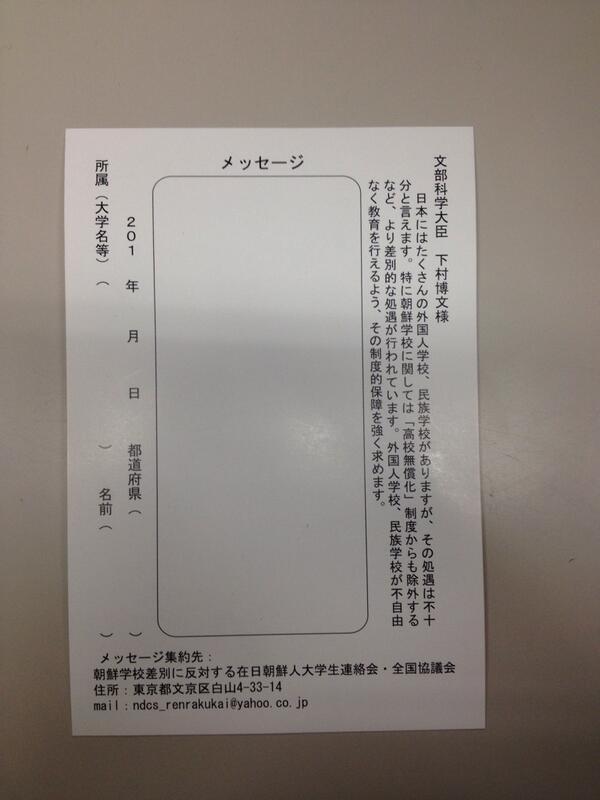 文部科学大臣　下村博文様
　日本にはたくさんの外国人学校、民族学校がありますが、その処遇は不十
分と言えます。特に朝鮮学校に関しては「高校無償化」制度からも除外する
など、より差別的な処遇が行われています。外国人学校、民族学校が不自由
なく教育を行えるよう、その制度的保障を強く求めます。
メッセージ
２０１　年　　月　　日　　都道府県（　　　　　　）
所属（大学名等）（　　　　　　　　）　名前（　　　　　　）
メッセージ集約先：
朝鮮学校差別に反対する在日朝鮮人大学生連絡会・全国協議会
住所：東京都文京区白山4-33-14
mail：ndcs_renrakukai@yahoo.co.jp